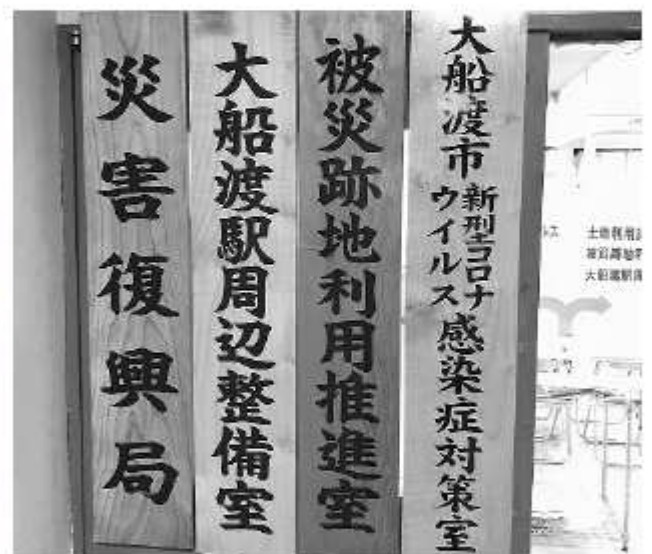 大船渡市新型コロナウイルス感染症対策室
被災跡地利用推進室
大船渡駅周辺整備室
災害復興局
土地利用